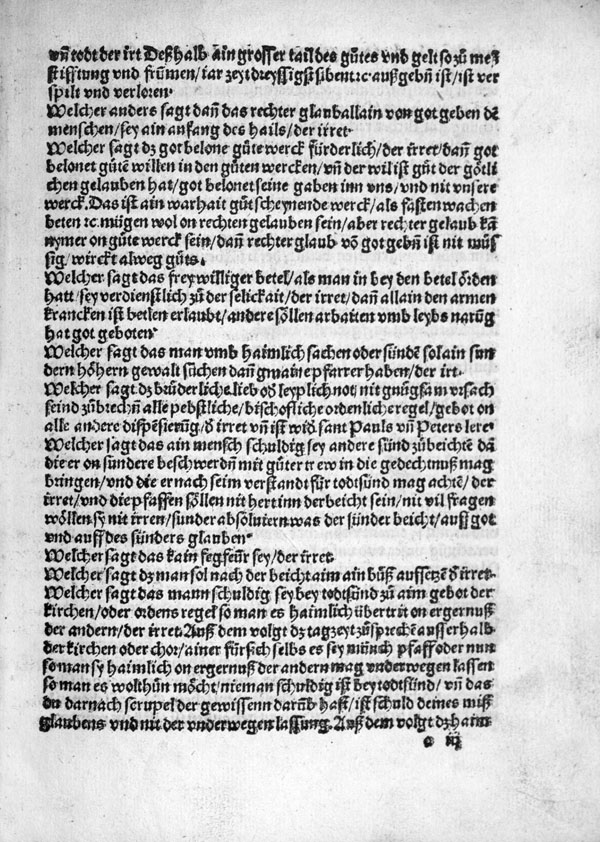 vñ todt der irt Deßhalb ain grosser tail des gůtes vnd gelt so zů meß
stifftung vnd frůmen/iar zeyt dreyssigst sibent ꝛc. außgebñ ist/ist ver
spilt vnd verloren.
Welcher anders sagt dañ das rechter glaub allain von got geben dē
menschen/sey ain anfang des hails/der irret.
Welcher sagt dz got belone gůte werck fürderlich/der irret/dañ got
belonet gůtē willen in den gůten wercken/vñ der wil ist gůt der götli
chen gelauben hat/got belonet seine gaben inn vns/vnd nit vnsere
werck. Das ist ain warhait gůt scheynende werck/als fasten wachen
beten ꝛc. mügen wol on rechten gelauben sein/aber rechter gelaub kā
nymer on gůte werck sein/dañ rechter glaub vō got gebñ ist nit můs
sig/wirckt alweg gůts.
Welcher sagt das frey williger betel/als man in bey den betel örden
hatt/sey verdienstlich zů der selickait/der irret/dañ allain den armen
krancken ist betlen erlaubt/andere söllen arbaiten vmb leybs narūg
hat got geboten.
Welcher sagt das man vmb haimlich sachen oder sünden sol ain sun
dern höhern gewalt sůchen dañ gmaine pfarrer haben/der irt.
Welcher sagt dz brüderliche lieb oď leyplich not/nit gnůgsam vrsach
seind zůbrechñ alle pebstliche/bischofliche ordenliche regel/gebot on
alle andere dispensierūg/ď irret vñ ist wiď sant Pauls vñ Peters lere.
Welcher sagt das ain mensch schuldig sey andere sünd zůbeichtē dā
die er on sundere beschwerdñ mit gůter trew in die gedechtnuß mag
bringen/vnd die er nach seim verstandt für todtsünd mag achtē/der
irret/vnd die pfaffen söllen nit hert inn der beicht sein/nit vil fragen
wöllen sy nit irren/sunder absoluiern was der sünder beicht/auff got
vnd auff des sünders glauben.
Welcher sagt das kain fegfeür sey/der irret.
Welcher sagt dz man sol nach der beicht aim ain bůß auffsetzē ď irret.
Welcher sagt das mann schuldig sey bey todtsünd zů aim gebot der
kirchen/oder ordens regel so man es haimlich übertrit on ergernuß
der andern/der irret. Auß dem volgt dz tagzeyt zůsprechē ausserhalb
der kirchen oder chor/ainer für sich selbs es sey münch pfaff oder nun
so man sy haimlich on ergernuß der andern mag vnderwegen lassen
so man es wol thůn möcht/nieman schuldig ist bey todtsünd/vñ das
du darnach scrupel der gewissenn darūb hast/ist schuld deines miß
glaubens vnd nit der vnderwegen lassung. Auß dem volgt dz haim
iij